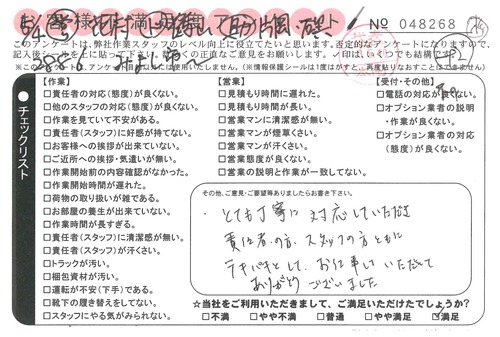 No 048268
このアンケートは、弊社作業スタッフのレベル向上に役立てたいと思います。否定的なアンケートになりますので、
チェックリスト
【作業】
□責任者の対応(態度)が良くない。
□他のスタッフの対応(態度)が良くない。
□作業を見ていて不安がある。
□責任者(スタッフ)に好感が持てない。
□お客様への挨拶が出来ていない。
□ご近所への挨拶・気遣いが無い。
□作業開始前の内容確認がなかった。
□作業開始時間が遅れた。
□荷物の取り扱いが雑である。
□お部屋の養生が出来ていない。
□作業時間が長すぎる。
□責任者(スタッフ)に清潔感が無い。
□責任者(スタッフ)が汗くさい。
□トラックが汚い。
□梱包資材が汚い。
□運転が不安(下手)である。
□靴下の履き替えをしてない。
□スタッフにやる気がみられない。
【営業】
□見積もり時間に遅れた。
□見積もり時間が長い。
□営業マンに清潔感が無い。
□営業マンが煙草くさい。
□営業マンが汗くさい。
□営業態度が良くない。
□営業の説明と作業が一致してない。
【受付・その他】
□電話の対応が良くない。
□オプション業者の説明
・作業が良くない。
□オプション業者の対応
(態度)が良くない。
その他、ご意見・ご要望等ありましたらお書き下さい。
・とても丁寧に対応していただき
責任者の方、スタッフの方ともに
テキパキとして、お仕事していただいて
ありがとうございました
☆当社をご利用いただきまして、ご満足いただけたでしょうか?
□不満 □やや不満 □普通 □やや満足 ☑満足